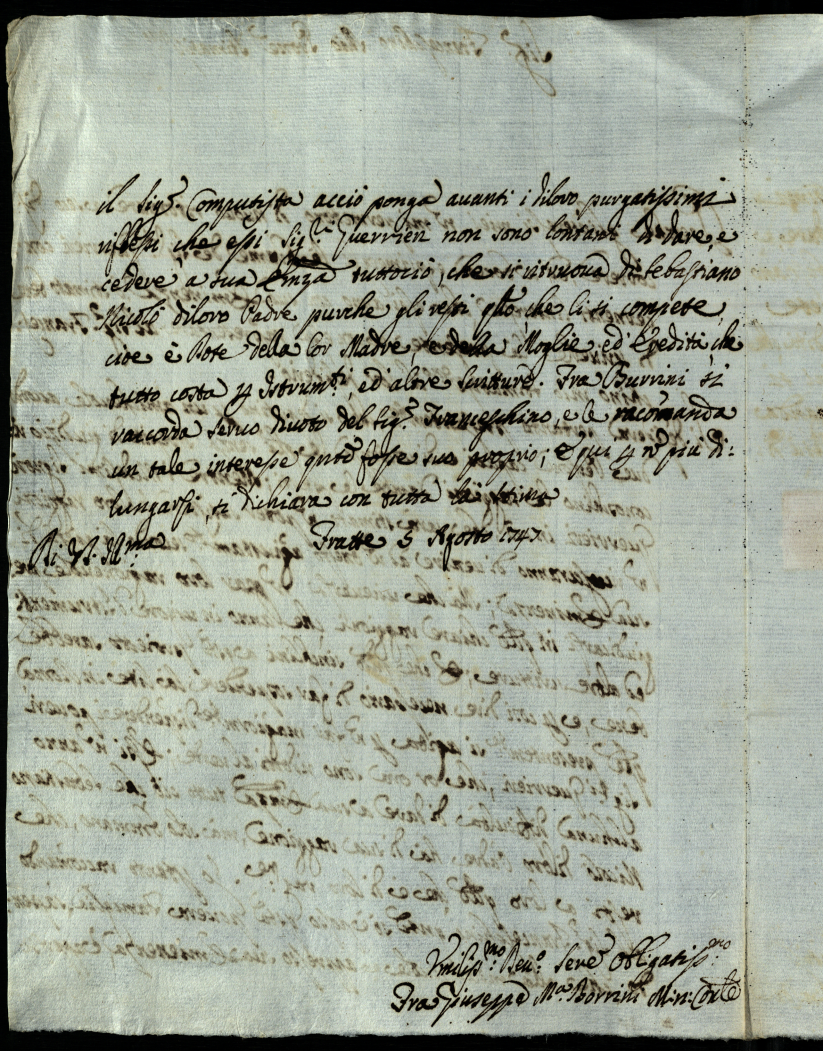 il Sig.r Computista acciò ponga avanti i diloro purgatissimi
riflessi che essi Sig.ri Guerrieri non sono lontani di dare, e
cedere à sua Emza tuttociò, che si ritruova di Sebastiano
Nicolò diloro Padre purche gli resti qllo, che li si compete,
cioe è Dote della lor Madre, e della Moglie, ed' Eredità, che
tutto costa p Istrum.ti, ed' altre Scritture. Fra Burrini si
raccorda servo divoto del Sig.r Franceschino, e le raccomanda
un tale interesse qnto fosse suo proprio; E qui p nō più di:
lungarsi, si dichiara con tutta la stima
Di V. S. Ill.ma Fratte 5 Agosto 1747
Vmiliss.mo Deu.o Serv.e Obbligatiss.mo
Fra Giuseppe M.a Borrini Min: Con.le